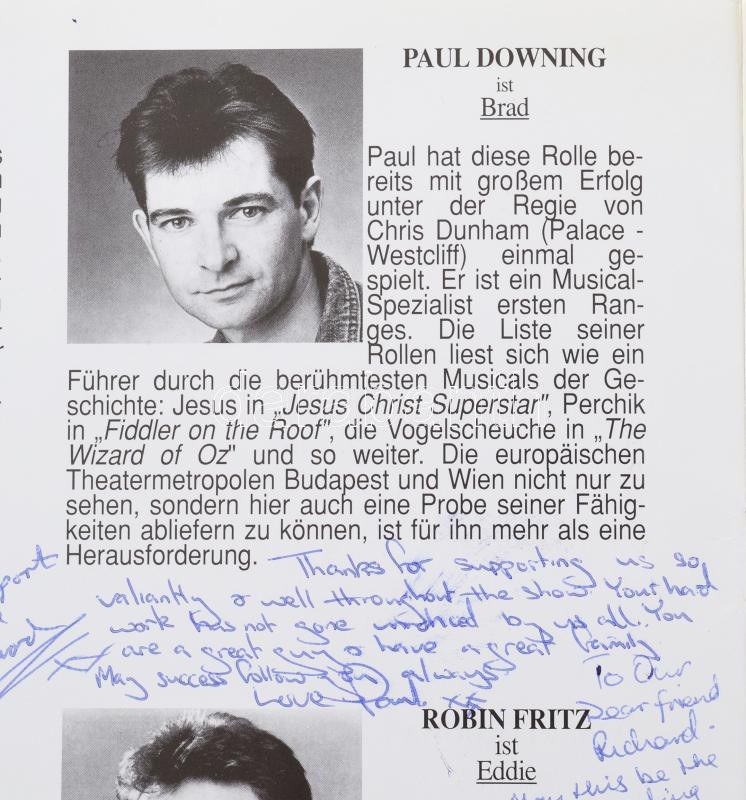 PAUL DOWNING
ist
Brad
Paul hat diese Rolle be-
reits mit großem Erfolg
unter der Regie von
Chris Dunham (Palace -
Westcliff) einmal ge-
spielt. Er ist ein Musical-
Spezialist ersten Ran-
ges. Die Liste seiner
Rollen liest sich wie ein
Führer durch die berühmtesten Musicals der Ge-
schichte: Jesus in „Jesus Christ Superstar", Perchik
in „Fiddler on the Roof", die Vogelscheuche in „The
Wizard of Oz" und so weiter. Die europäischen
Theatermetropolen Budapest und Wien nicht nur zu
sehen, sondern hier auch eine Probe seiner Fähig-
keiten abliefern zu können, ist für ihn mehr als eine
Herausforderung.
Thanks for supporting us so
valiantly & well throughout the show. Your hard
work has not gone unnoticed by us all. You
are a great guy & have a great family
May success follow you always
Love Paul xx
ROBIN FRITZ
ist
Eddie
To Our
Dear friend
Richard -
May this be the